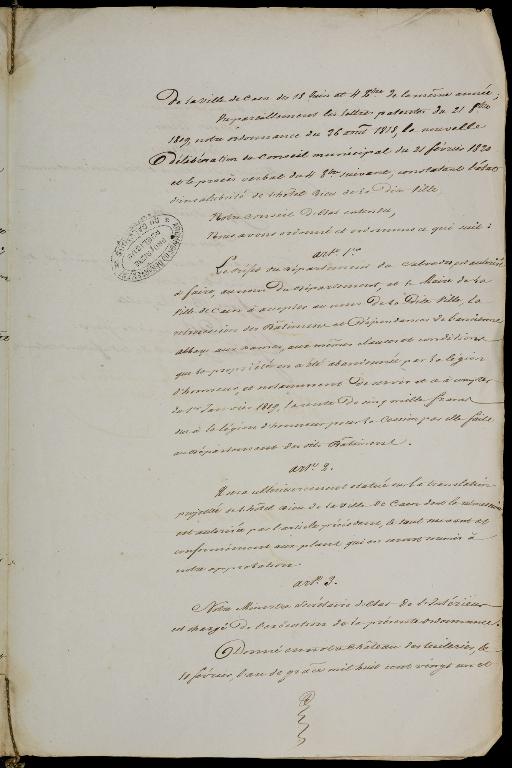 De la ville de Caen des 15 Juin et 4 8bre de la même année;
Vu pareillement les lettres patentes du 21 8bre
1819, notre ordonnance du 26 août 1818, la nouvelle
Délibération du Conseil municipal du 21 février 1820
et le procès verbal du 4 8bre suivant, constatant l'état
d'insalubrité de l'hôtel Dieu de la Dite Ville
Notre Conseil d'Etat entendu,
Nous avons ordonné et ordonnons ce qui suit:
art. 1er
Le Préfet du Département du Calvados est autorisé
à faire, au nom du Département, et le Maire de la
Ville de Caen à accepter au nom De la Dite Ville, la
rétrocession des Bâtimens et Dépendances de l'ancienne
abbaye aux Dames, aux mêmes clauses et conditions
que la propriété en a été abandonnée par la légion
d'honneur, et notamment De servir et à compter
du 1er Janvier 1819, la rente De cinq mille francs
due à la légion d'honneur pour la Cession par elle faite
au Département des dits Bâtimens.
art. 2.
Il sera ultérieurement statué sur la translation
projettée de l'hôtel Dieu de la Ville De Caen dont la
est autorisée par l'article précédent, le tout suivant et
conformément aux plans qui en seront soumis à
notre approbation.
art. 3.
Notre Ministre Secrétaire d'Etat De l'Intérieur
est chargé De l'exécution de la présente ordonnance.
Donné en notre Château des tuileries, le
février, l'an de grâce mil huit cent vingt un et